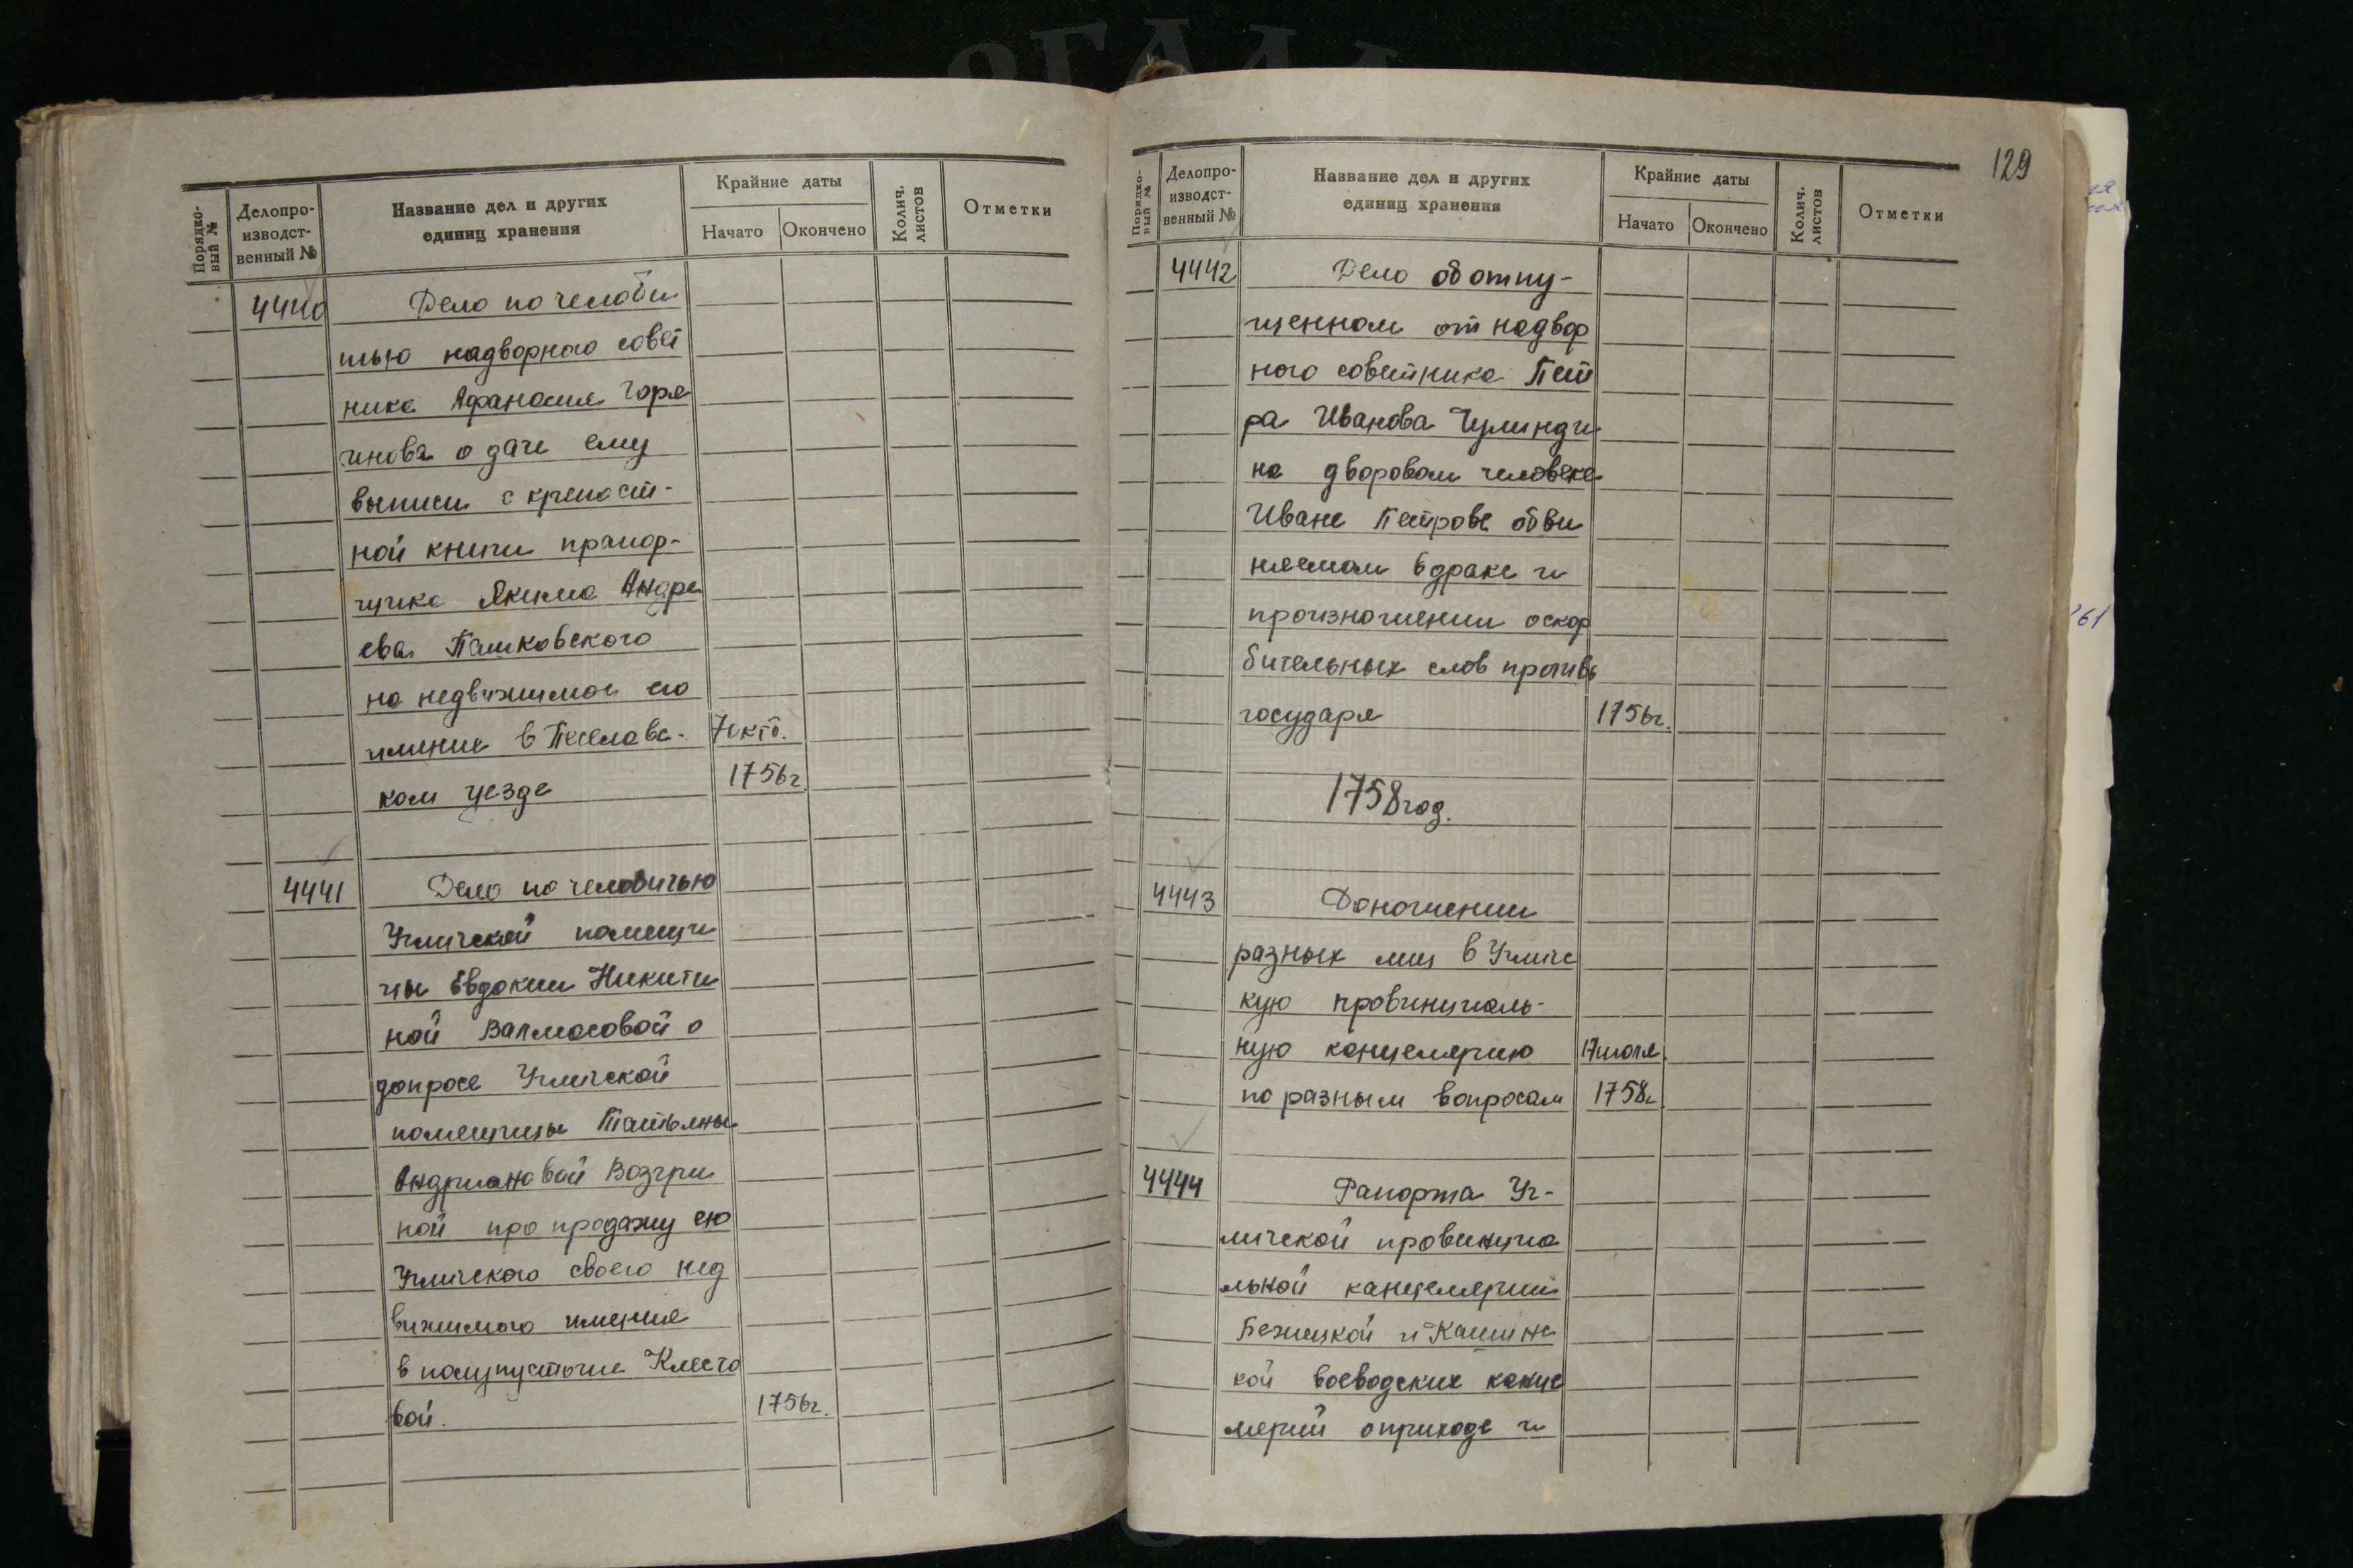 Порядко-
вый №
Делопро-
изводст-
венный №
Название дел и других
единиц хранения
Крайние даты
Начато
Окончено
Колич.
листов
Отметки
4440
Дело по челоби
тью надворного совет
ника Афанасия Горя
инова о даче ему
выписи с крепост-
ной книги прапор-
щика Якима Андре
ева Пашковского
на недвижимое его
имение в
7 окт.
ком уезде
1756г
4441
Дело по челобитью
Угличской помещи
цы Евдокии Никити
ной Валмасовой о
допросе Угличской
помещицы Татьяны
Андриановой Возгри
ной про продажу ею
Угличского своего нед
вижимого имения
в полупустоши Клесто
вой.
1756г.
129
Порядко-
вый №
Делопро-
изводст-
венный №
Название дел и других
единиц хранения
Крайние даты
Начато
Окончено
Колич.
листов
Отметки
4442
Дело об отпу-
щенном от надвор
ного советника Пет
ра Иванова
на дворовом человеке
Иване Петрове обви
няемом в драке и
произношении оскор
бительных слов против
государя
1756г.
1758 год.
4443
Доношении
разных лиц в Угличс
кую провинциаль-
ную канцелярию
17 июля
по разным вопросам
1758г.
4444
Рапорта Уг-
личской провинциа
льной канцелярии
Бежецкой и Кашинс
кой воеводских канце
лярий о приходе и